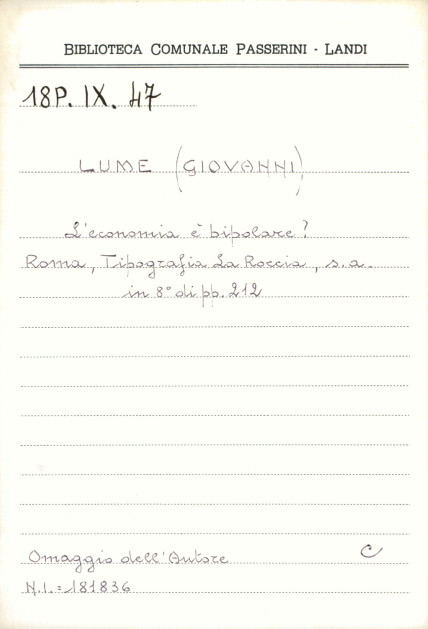 BIBLIOTECA COMUNALE PASSERINI - LANDI
18P. IX. 47
LUME (GIOVANNI)
L'economia è bipolare?
Roma, Tipografia La Roccia, s.a.
in 8° di pp. 212
Omaggio dell'Autore C
N.I. = 181836